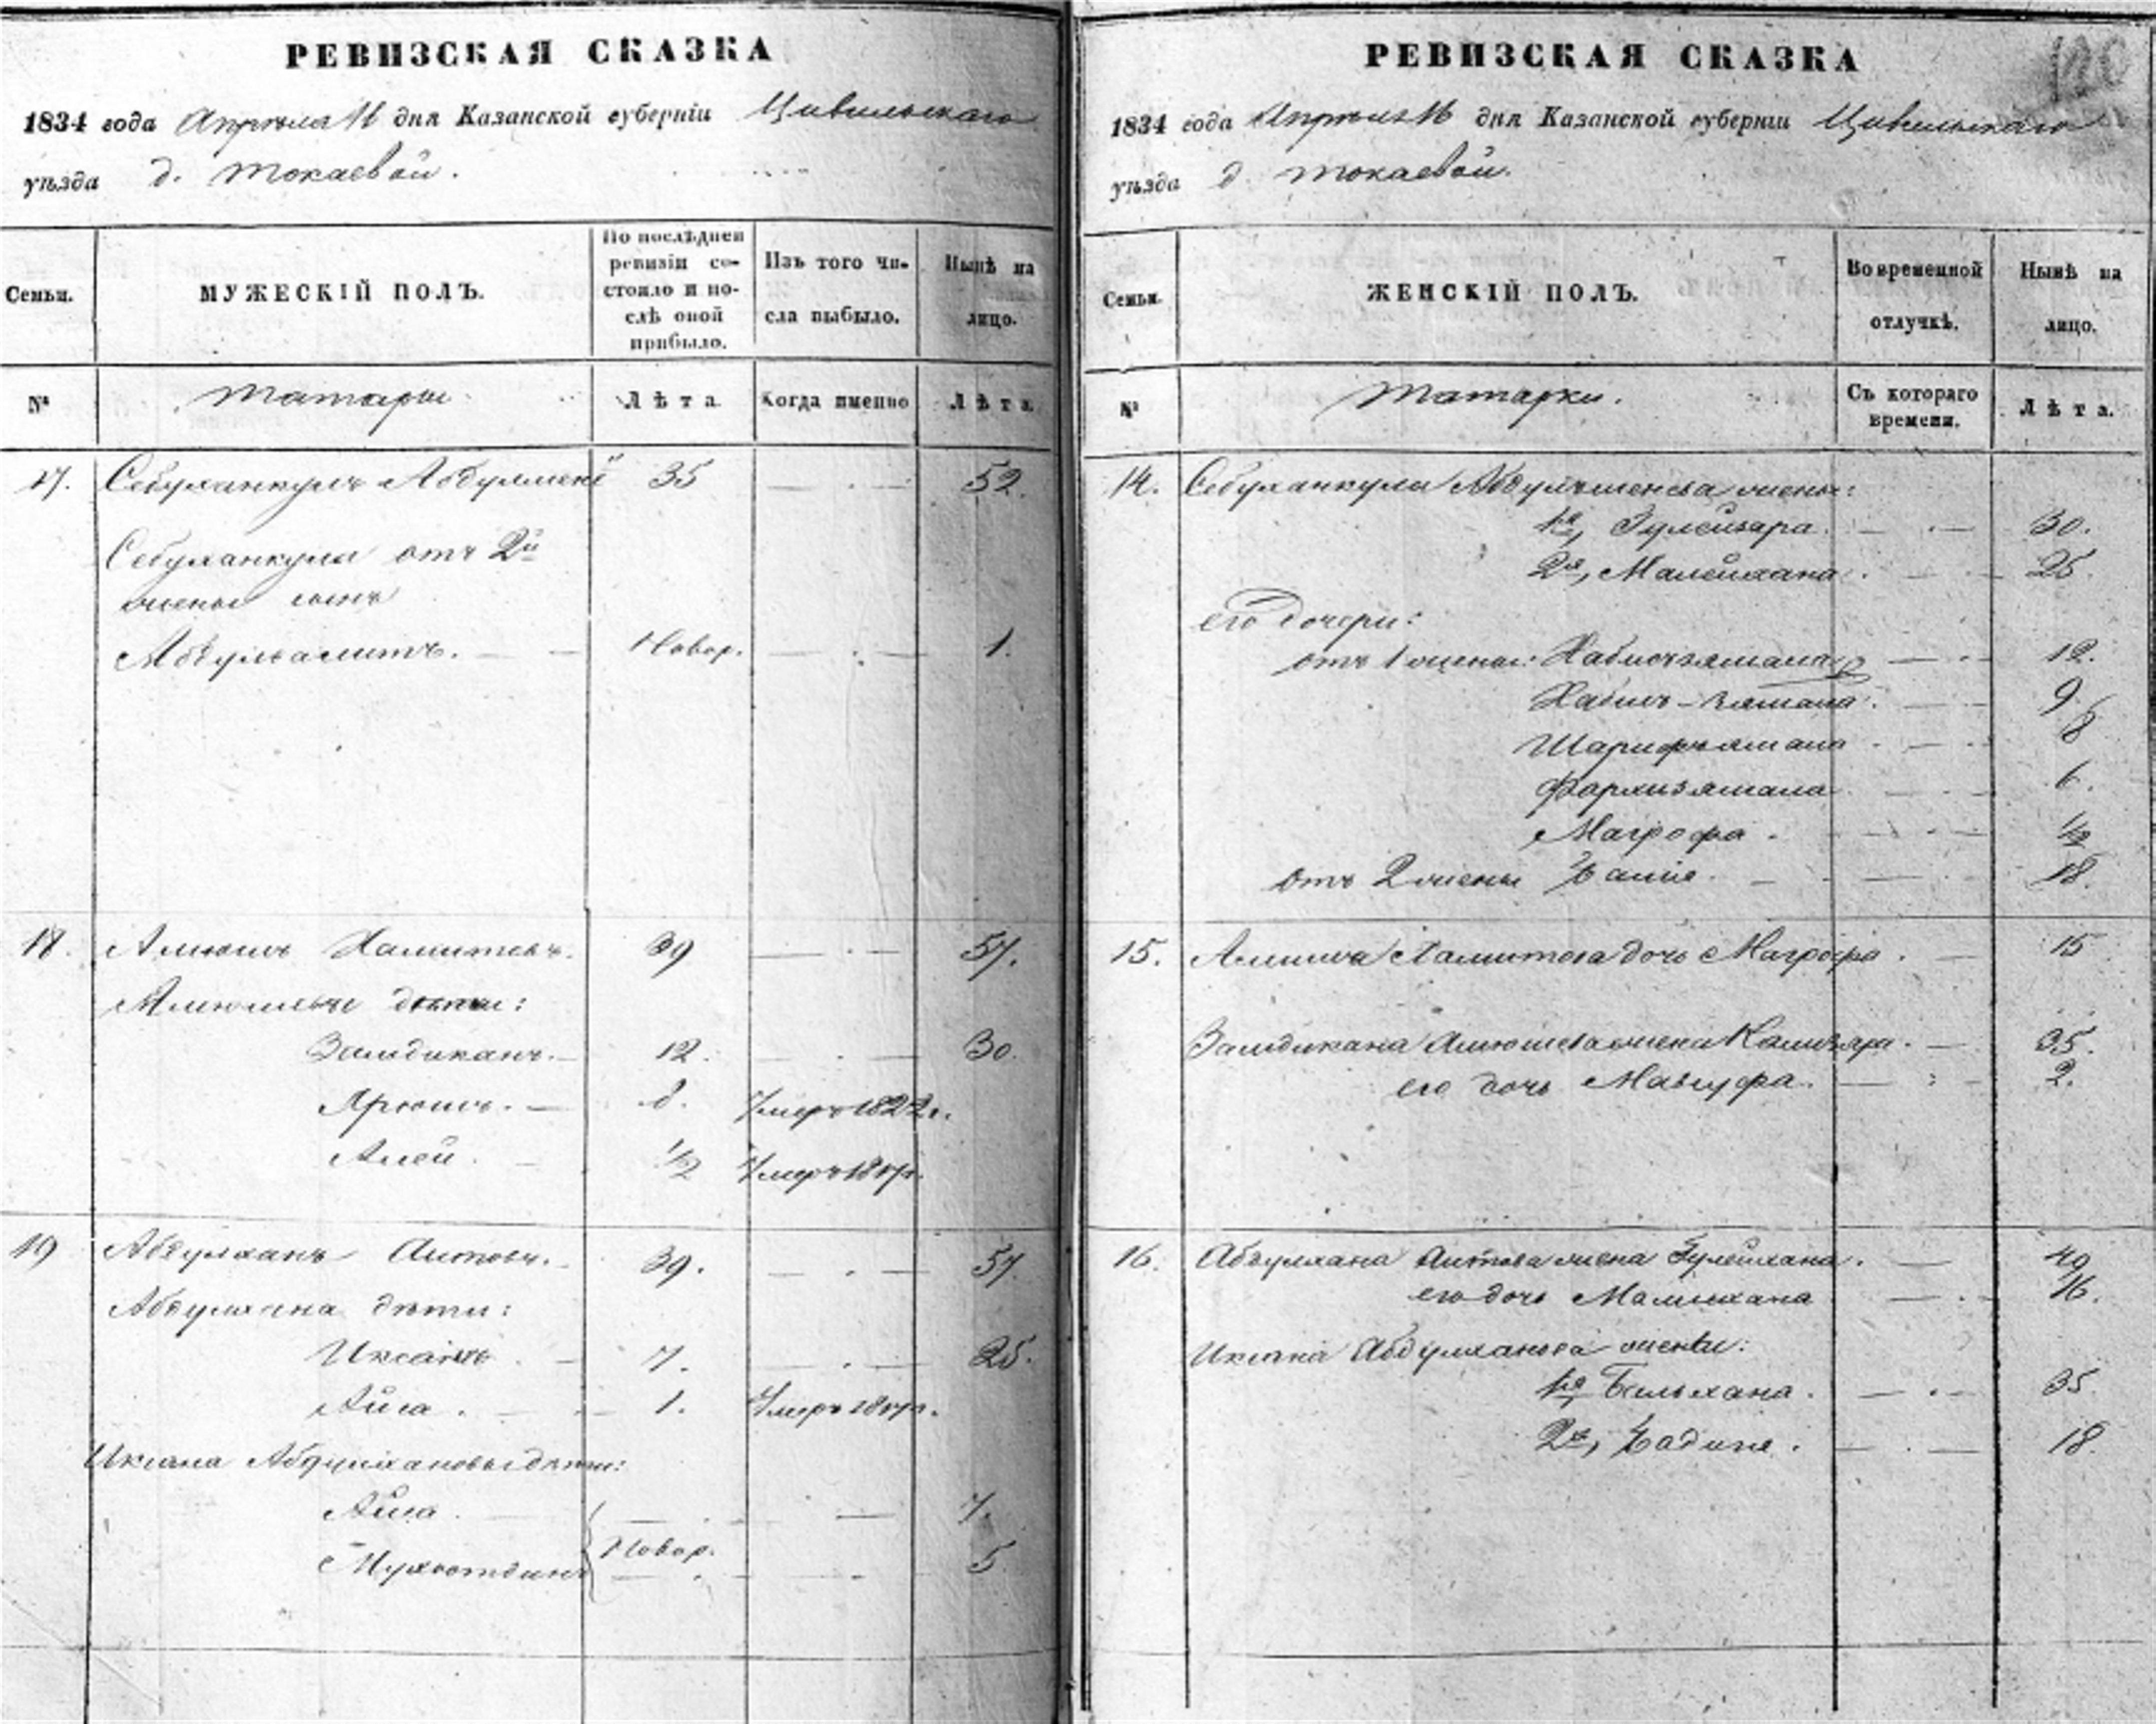 РЕВИЗСКАЯ СКАЗКА
1834 года Апреля 16 дня Казанской губерніи Цивильскаго
уѣзда д. Токаевой.
Семьи.
МУЖЕСКІЙ ПОЛЪ.
По послѣдней
ревизіи со-
стояло и по-
слѣ оной
прибыло.
Изъ того чи-
сла выбыло.
Нынѣ на
лицо.
№
Татары
Лѣта
Когда именно
Лѣта
17. Себуханкулъ Абдулмене 35 52.
Себуханкула отъ 2й
жены сынъ
Новор. 1.
18. Хамитовъ. 39 57.
дѣти:
Заидиканъ. 12. 30.
8. Умеръ 1822.
Алей. 1/2 Умеръ
19 Абдулханъ Аитовъ. 39. 57
Абдулхана дѣти:
Иксанъ 7. 25.
Айса. 1.
Иксана Абдулхановы дѣти:
Айса. 7.
Новор. 5
РЕВИЗСКАЯ СКАЗКА
120
1834 года Апреля 16 дня Казанской губерніи Цивильскаго
уѣзда д. Токаевой.
Семьи.
ЖЕНСКІЙ ПОЛЪ.
Во временной
отлучкѣ.
Нынѣ на
лицо.
№
Татарки.
Съ котораго
времени.
Лѣта.
14. Себуханкула жены:
1я, Гулейзара. 30.
2я, Малейхана. 25
его дочери:
отъ 1 жены: 12.
Хабиб-зямала. 9.
8
6.
Магрофа. 1/2
отъ 2 жены 18.
15. Хамитова дочь Магрофа. 15
Заидикана жена 35.
его дочь 2.
16. Абдулхана Аитова жена Гулейхана. 49
его дочь 16.
Иксана Абдулханова жены:
1я 35.
2я, Бадиня. 18.